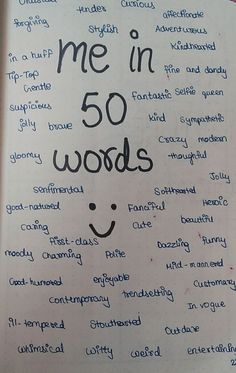 Unusual tender Curious
forgiving affectionate
Stylish Adventurous
me in
in a huff Kindhearted
Tip-Top fine and dandy
Gentle
fantastic Selfie queen
suspicious
50
jolly brave kind Sympathetic
Crazy modern
gloomy words thoughtful
Jolly
sentimental Softhearted
good-natured Fanciful Heroic
caring Cute beautiful
first-class Dazzling funny
moody charming Polite
Mild-mannered
Good-humored enjoyable Customary
Contemporary trendsetting
In vogue
ill-tempered Stouthearted
Outdare
whimsical Witty weird entertaining